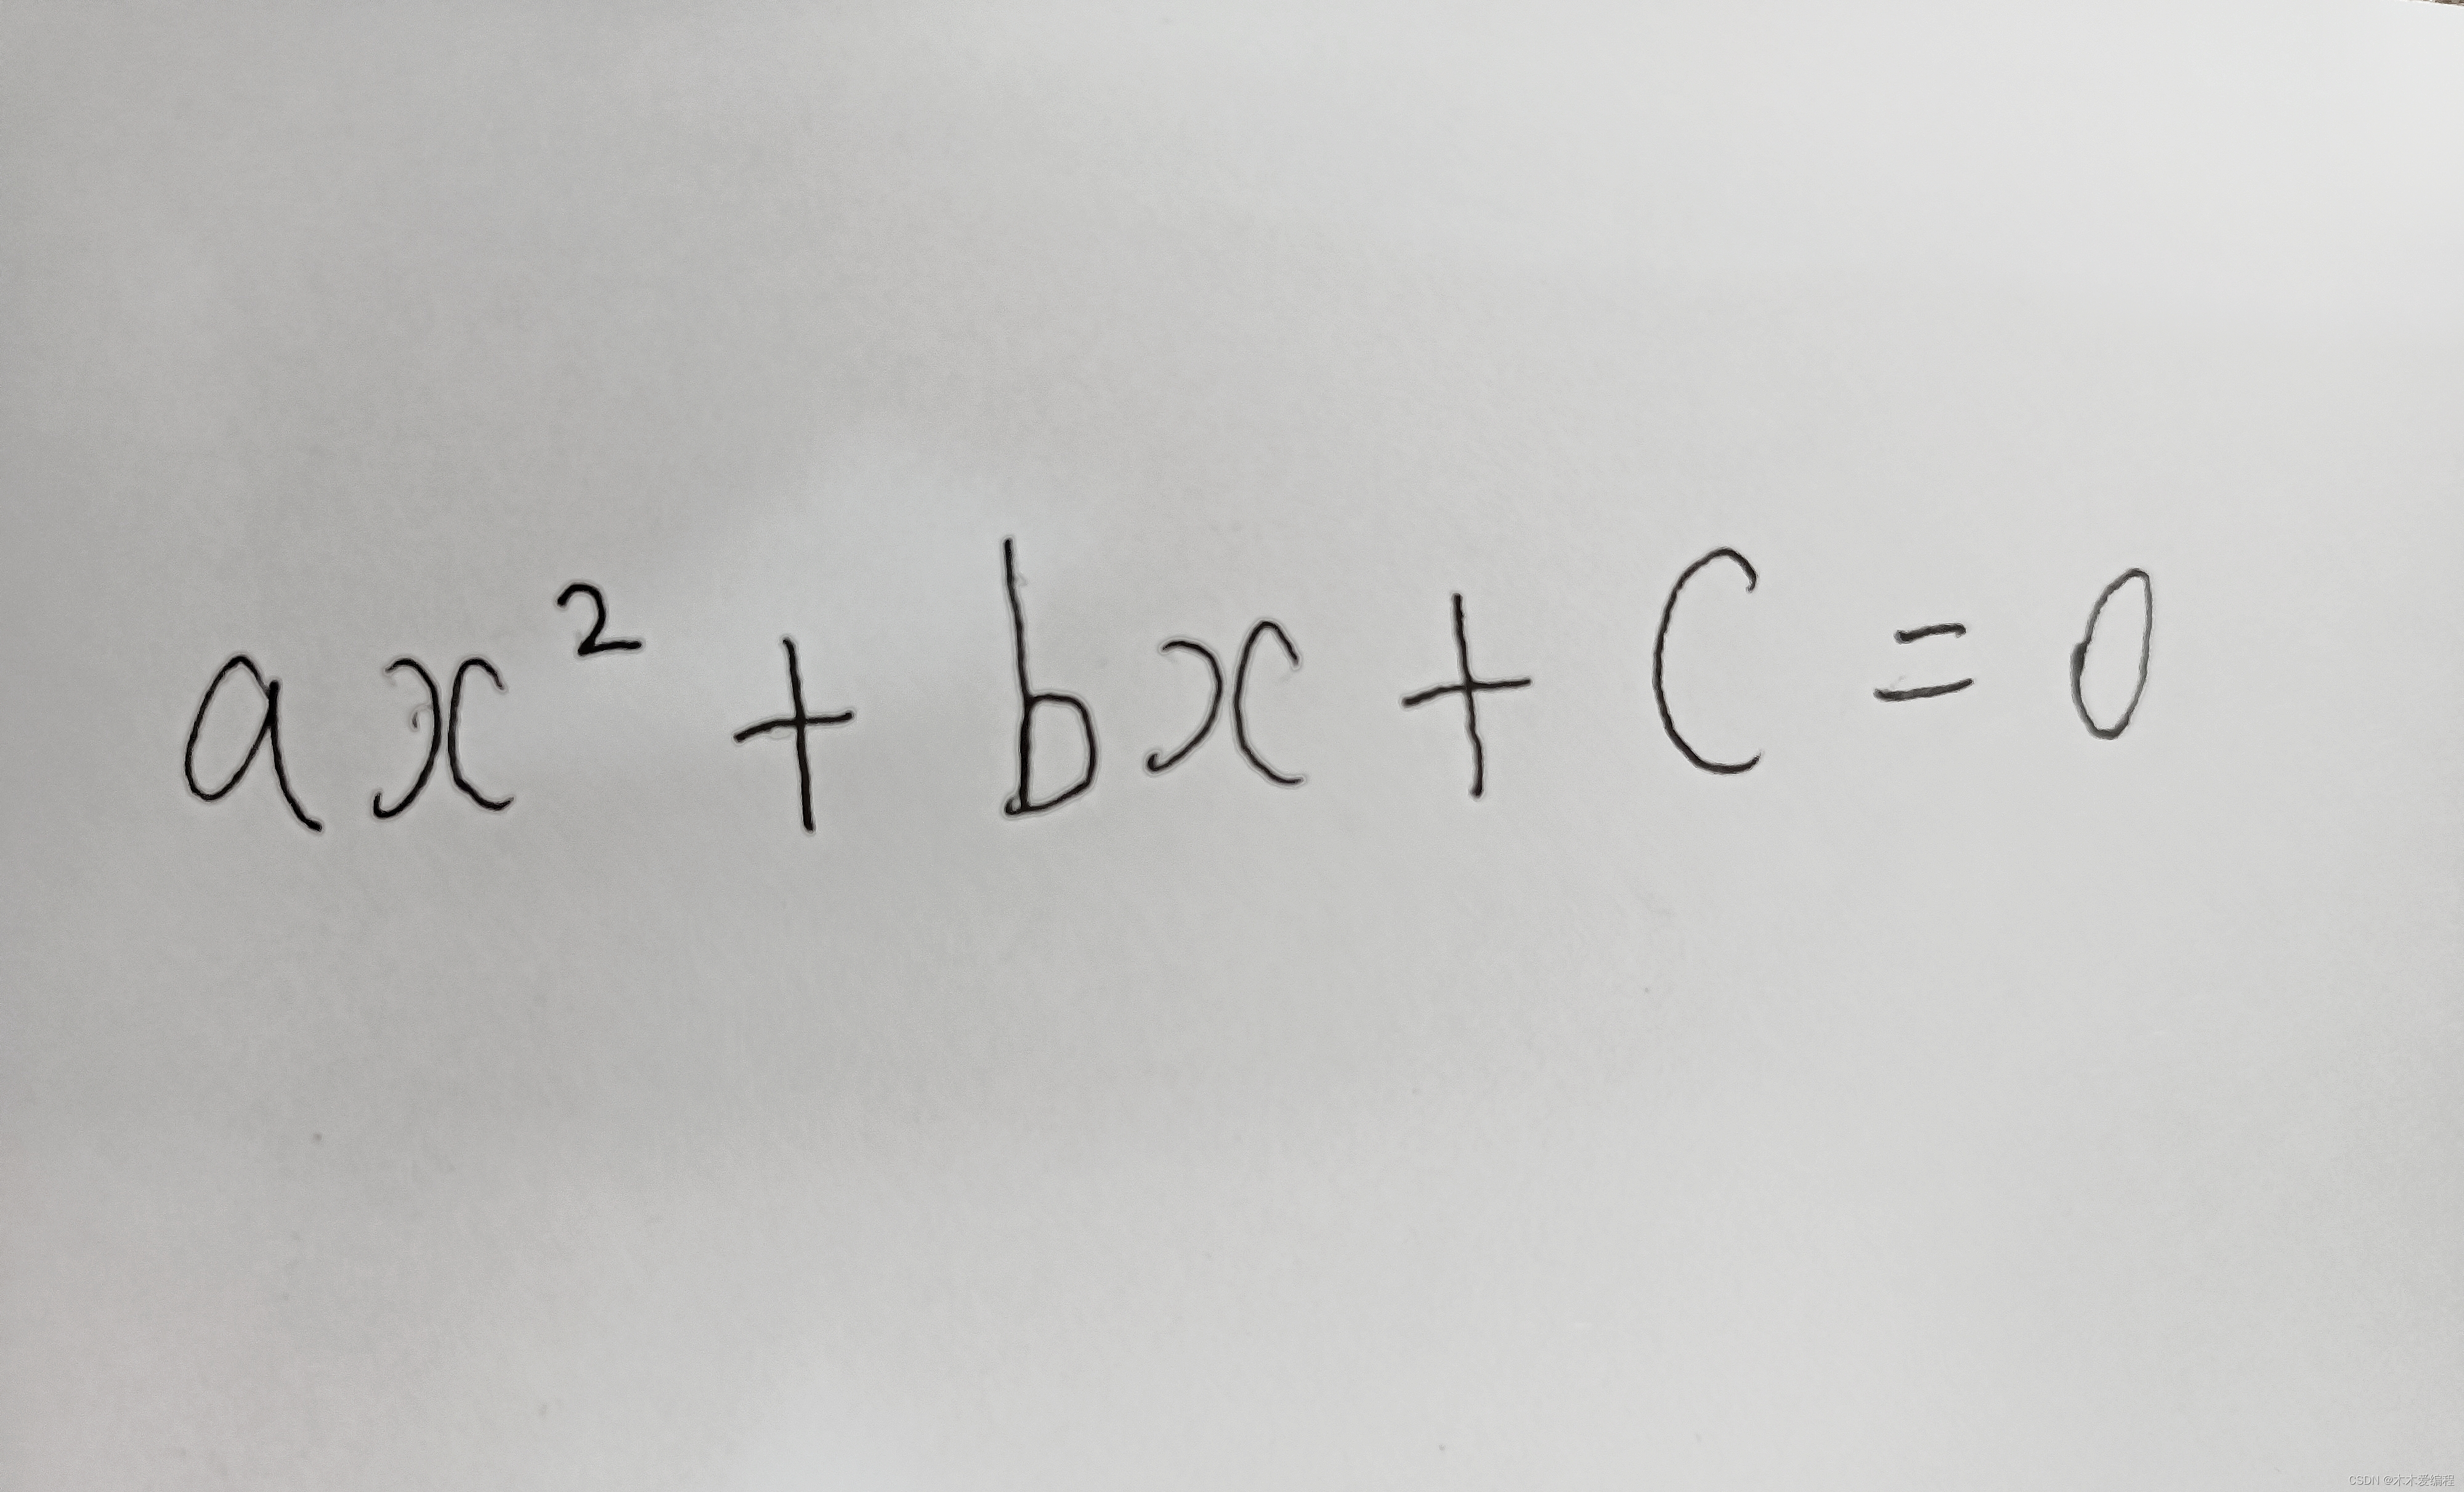 ax² + bx + c = 0
CSDN @木木爱编程